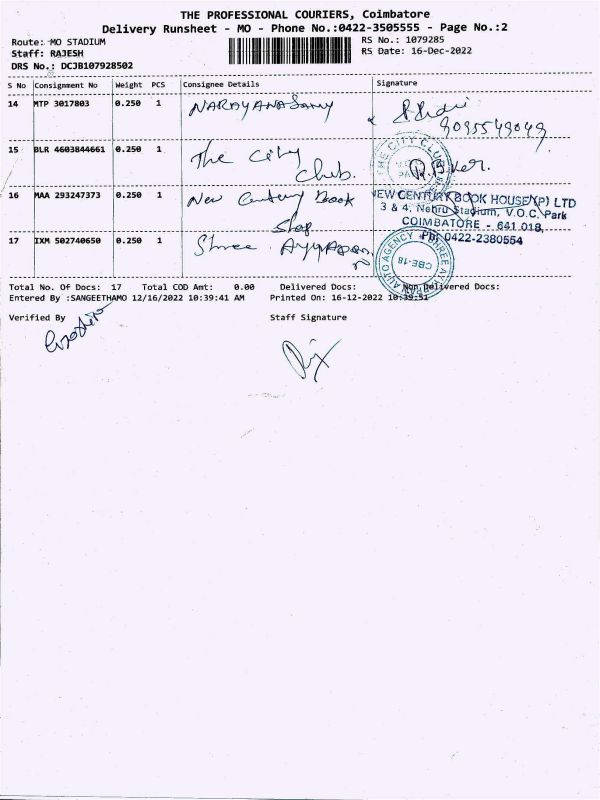 THE PROFESSIONAL COURIERS, Coimbatore
Delivery Runsheet - MO - Phone No.:0422-3505555 - Page No.:2
Route: MO STADIUM
RS No.: 1079285
Staff: RAJESH
RS Date: 16-Dec-2022
DRS No.: DCJB107928502
S No Consignment No Weight PCS Consignee Details Signature
14 MTP 3017803 0.250 1 NARAYANASamy
9095549049
15 BLR 4603844661 0.250 1 The City Club.
THE CITY CLUB
16 MAA 293247373 0.250 1 New Century Book Shop
NEW CENTURY BOOK HOUSE (P) LTD
3 & 4, Nehru Stadium, V.O.C. Park
COIMBATORE - 641 018.
Ph: 0422-2380554
17 IXM 502740650 0.250 1 Shree Ayyappan
AUTO AGENCY
CBE-18
Total No. Of Docs: 17 Total COD Amt: 0.00 Delivered Docs: Non Delivered Docs:
Entered By :SANGEETHAMO 12/16/2022 10:39:41 AM Printed On: 16-12-2022 10:39:51
Verified By Staff Signature